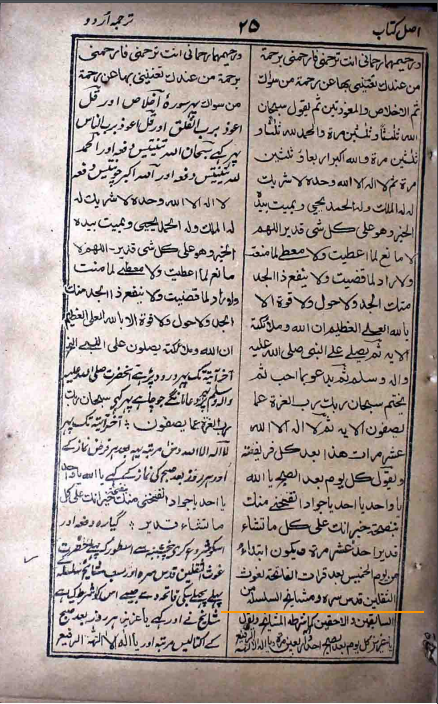 اصل کتاب
۲۵
ترجمہ اُردو
ورحیمهما رحمانی انت ترحمنی فارحمنی
برحمة من عندك تغنینی بها عن رحمة من سواك
ثم الاخلاص والمعوذتین ثم یقول سبحان
الله ثلثا وثلثین مرة والحمد لله ثلثا و
ثلثین مرة والله اکبر اربعا وثلثین
مرة ثم لا اله الا الله وحده لا شریك
له له الملك وله الحمد یحیی ویمیت بیده
الخیر وهو علی کل شی قدیر اللهم
لا مانع لما اعطیت ولا معطی لما منعت
ولا راد لما قضیت ولا ینفع ذا الجد
منك الجد ولا حول ولا قوة الا
بالله العلی العظیم ان الله وملائکته
الایه ثم یصلی علی النبی صلی الله علیه
واله وسلم ثم یدعو بما احب ثم
یختم سبحان ربك رب العزة عما
یصفون الایه ثم لا اله الا الله
عشر مرات هذا بعد کل فریضة
ویقول کل یوم بعد الصبح یا الله
یا واحد یا احد یا جواد انفحنی منك
بنفحة خیر انك علی کل ما تشاء
قدیر احد عشر مرة ویکون ابتداء
من یوم الخمیس بعد قرأت الفاتحة لغوث
الثقلین قدس سره ومشایخ السلسلة
السابقین والاحقین
ورحیمهما رحمانی انت ترحمنی فارحمنی
برحمة من عندك تغنینی بها عن رحمة
من سواك پهر سورۂ اخلاص اور قل
اعوذ برب الفلق اور قل اعوذ برب الناس
پهر کہے سبحان الله تینتیس دفعہ اور الحمد
لله تینتیس دفعہ اور الله اکبر چونتیس دفعہ
لا اله الا الله وحده لا شریك له
له الملك وله الحمد یحیی ویمیت بیده
الخیر وهو علی کل شی قدیر۔ اللهم لا
مانع لما اعطیت ولا معطی لما منعت
ولا راد لما قضیت ولا ینفع ذا الجد منك
الجد ولا حول ولا قوة الا بالله العلی العظیم
ان الله وملائکته یصلون علی النبی الخ
آخر آیة تك پهر درود پڑھے آنحضرت صلی الله علیہ
وآلہ وسلم پر دعا مانگے جو چاہے پهر کہے سبحان ربك
رب العزة عما یصفون آخر آیة تك پهر
لا اله الا الله دس مرتبہ بعد ہر فرض نماز کے
اور ہر روز بعد صبح کی نماز کے کہے یا الله یا واحد
یا احد یا جواد انفحنی منك بنفحة خیر انك علی کل
ما تشاء قدیر گیارہ دفعہ اور
غوث الثقلین قدس سرہ اور سب مشایخ سلسلہ